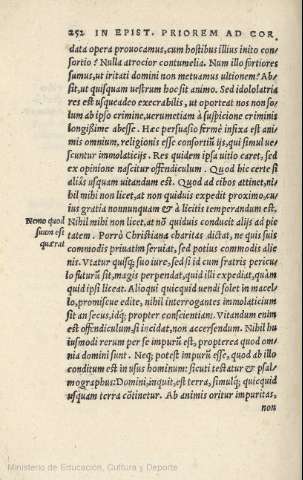 252 IN EPIST. PRIOREM AD COR
data opera prouocamus, cum hostibus illius inito con
sortio? Nulla atrocior contumelia. Num illo fortiores
sumus, ut iritati domini non metuamus ultionem? Ab/
sit, ut quisquam uestrum hoc sit animo. Sed idololatria
res est usqueadeo execrabilis, ut oporteat nos non so/
lum ab ipso crimine, uerumetiam à suspicione criminis
longißime abesse. Hæc persuasio fermè infixa est ani
mis omnium, religionis esse consortiũ ijs, qui simul ue/
scuntur immolaticijs. Res quidem ipsa uitio caret, sed
ex opinione nascitur offendiculum. Quod hic certe si
aliâs usquam uitandum est. Quod ad cibos attinet, ni/
bil mihi non licet, at non quiduis expedit proximo, cu/
ius gratia nonnunquam & à licitis temperandum est.
Nihil mihi non licet, at nõ quiduis conducit aliis ad pie
Nemo quod
suum est
quærat
tatem. Porrò Christiana charitas dictat, ne quis suis
commodis priuatim seruiat, sed potius commodis alie
nis. Vtatur quisq; suo iure, sed si id cum fratris pericu/
lo futurũ sit, magis perpendat, quid illi expediat, quàm
quid ipsi liceat. Alioqui quicquid uendi solet in macel/
lo, promiscue edite, nihil interrogantes immolaticium
sit an secus, idq; propter conscientiam. Vitandum enim
est offendiculum, si incidat, non accersendum. Nihil hu
iusmodi rerum per se impurũ est, propterea quod om/
nia domini sunt. Neq; potest impurũ esse, quod ab illo
conditum est in usus hominum: sicuti testatur & psal/
mographus: Domini, inquit, est terra, simulq; quicquid
usquam terra cõtinetur. Ab animis oritur impuritas,
non
Ministerio de Educación, Cultura y Deporte